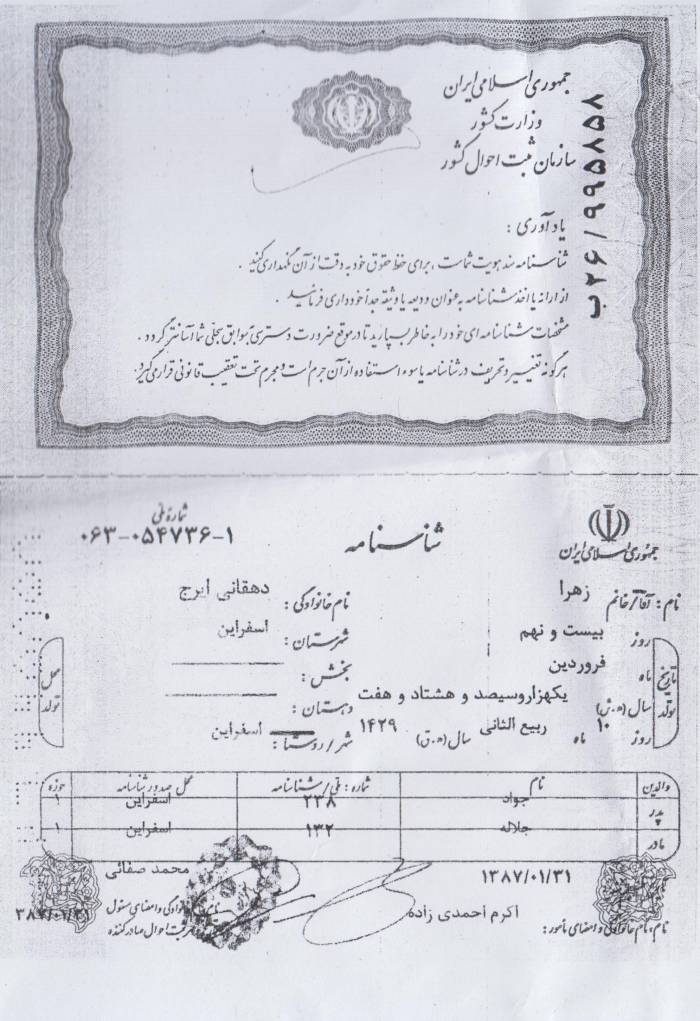 جمهوری اسلامی ایران
وزارت کشور
سازمان ثبت احوال کشور
ب ۲۶/۹۹۵۸۵۸
یادآوری :
شناسنامه سند هویت شماست ، برای حفظ حقوق خود به دقت از آن نگهداری کنید .
از ارائه یا اخذ شناسنامه به عنوان ودیعه یا وثیقه جداً خودداری فرمائید .
مشخصات شناسنامه ای خود را به خاطر بسپارید تا در موقع ضرورت دسترسی به سوابق سجلی شما آسانتر گردد .
هرگونه تغییر و تحریف در شناسنامه یا سوء استفاده از آن جرم است و مجرم تحت تعقیب قانونی قرار می گیرد.
جمهوری اسلامی ایران
شناسنامه
شماره ملی
۰۶۳-۰۵۴۷۳۶-۱
نام : آقا/خانم زهرا نام خانوادگی : دهقانی ایرج
تاریخ تولد روز بیست و نهم شهرستان : اسفراین محل تولد
ماه فروردین بخش :
سال (ه.ش) یکهزاروسیصد و هشتاد و هفت دهستان :
روز ۱۰ ماه ربیع الثانی سال (ه.ق) ۱۴۲۹ شهر/روستا : اسفراین
والدین نام شماره : ملی/شناسنامه محل صدور شناسنامه حوزه
پدر جواد ۲۳۸ اسفراین ۱
مادر جلاله ۱۳۲ اسفراین ۱
۱۳۸۷/۰۱/۳۱ محمد صفائی
اکرم احمدی زاده
نام، نام خانوادگی و امضای مأمور :
خانوادگی و امضای مسئول
ثبت احوال صادرکننده